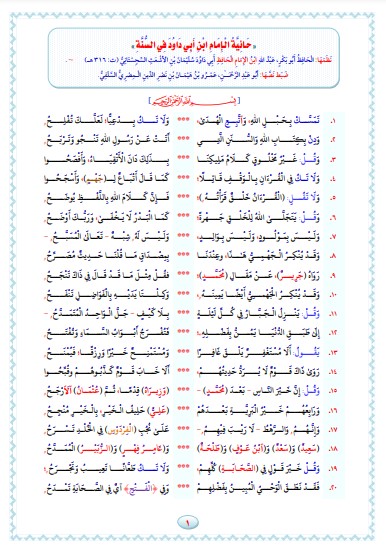 « حَائِيَّةُ الْإِمَامِ ابْنِ أَبِي دَاوُدَ فِي السُّنَّةِ »
نَظَمَهَا: الْحَافِظُ أَبُو بَكْرٍ، عَبْدُ اللهِ ابْنُ الْإِمَامِ الْحَافِظِ أَبِي دَاوُدَ سُلَيْمَانَ بْنِ الْأَشْعَثِ السِّجِسْتَانِيُّ (ت: ٣١٦هـ)
ضَبَطَ نَصَّهَا: أَبُو عَبْدِ الرَّحْمَنِ، عَمْرُو بْنُ هَيْمَانَ بْنِ نَصْرِ الدِّينِ الْمِصْرِيُّ السَّلَفِيُّ
بِسْمِ اللهِ الرَّحْمَنِ الرَّحِيمِ
١. تَمَسَّكْ بِحَبْلِ اللهِ، وَاتَّبِعِ الْهُدَىٰ، *** وَلَا تَكُ بِدْعِيًّا؛ لَعَلَّكَ تُفْلِحُ
٢. وَدِنْ بِكِتَابِ اللهِ وَالسُّنَنِ الَّتِي *** أَتَتْ عَنْ رَسُولِ اللهِ تَنْجُو وَتَرْبَحُ
٣. وَقُلْ: غَيْرُ مَخْلُوقٍ كَلَامُ مَلِيكِنَا *** بِذَلِكَ دَانَ الْأَتْقِيَاءُ، وَأَفْصَحُوا
٤. وَلَا تَكُ فِي الْقُرْءَانِ بِالْوَقْفِ قَائِلًا؛ *** كَمَا قَالَ أَتْبَاعٌ لِـ(جَهْمٍ)، وَأَسْجَحُوا
٥. وَلَا تَقُلِ: الْقُرْءَانُ خَلْقٌ قَرَأْتُهُ، *** فَإِنَّ كَلَامَ اللهِ بِاللَّفْظِ يُوضَحُ
٦. وَقُلْ: يَتَجَلَّى اللهُ لِلْخَلْقِ جَهْرَةً؛ *** كَمَا الْبَدْرُ لَا يَخْفَىٰ، وَرَبُّكَ أَوْضَحُ
٧. وَلَيْسَ بِمَوْلُودٍ، وَلَيْسَ بِوَالِدٍ، *** وَلَيْسَ لَهُ شِبْهٌ – تَعَالَىٰ الْمُسَبَّحُ –
٨. وَقَدْ يُنْكِرُ الْجَهْمِيُّ هَذَا، وَعِنْدَنَا *** بِمِصْدَاقِ مَا قُلْنَا حَدِيثٌ مُصَرِّحُ
٩. رَوَاهُ (جَرِيرٌ)، عَنْ مَقَالِ (مُحَمَّدٍ)؛ *** فَقُلْ مِثْلَ مَا قَدْ قَالَ فِي ذَاكَ تَنْجَحُ
١٠. وَقَدْ يُنْكِرُ الْجَهْمِيُّ أَيْضًا يَمِينَهُ، *** وَكِلْتَا يَدَيْهِ بِالْفَوَاضِلِ تَنْفَحُ
١١. وَقُلْ: يَنْزِلُ الْجَبَّارُ فِي كُلِّ لَيْلَةٍ *** بِلَا كَيْفَ – جَلَّ الْوَاحِدُ الْمُتَمَدَّحُ –
١٢. إِلَىٰ طَبَقِ الدُّنْيَا يَمُنُّ بِفَضْلِهِ؛ *** فَتُفْرَجُ أَبْوَابُ السَّمَاءِ وَتُفْتَحُ
١٣. يَقُولُ: أَلَا مُسْتَغْفِرٌ يَلْقَ غَافِرًا *** وَمُسْتَمْنِحٌ خَيْرًا وَرِزْقًا؛ فَيُمْنَحُ
١٤. رَوَىٰ ذَاكَ قَوْمٌ لَا يُرَدُّ حَدِيثُهُمْ، *** أَلَا خَابَ قَوْمٌ كَذَّبُوهُمْ وَقُبِّحُوا
١٥. وَقُلْ: إِنَّ خَيْرَ النَّاسِ – بَعْدَ (مُحَمَّدٍ) – *** (وَزِيرَاهُ) قِدْمًا، ثُمَّ (عُثْمَانُ) الَارْجَحُ
١٦. وَرَابِعُهُمْ خَيْرُ الْبَرِيَّةِ بَعْدَهُمْ *** (عَلِيٌّ) حَلِيفُ الْخَيْرِ، بِالْخَيْرِ مُنْجِحُ
١٧. وَإِنَّهُمُ، وَالرَّهْطُ – لَا رَيْبَ فِيهِمُ – *** عَلَىٰ نُجُبِ (الْفِرْدَوْسِ) فِي الْخُلْدِ تَسْرَحُ
١٨. (سَعِيدٌ) وَ(سَعْدٌ) وَ(ابْنُ عَوْفٍ) وَ(طَلْحَةُ) *** وَ(عَامِرُ فِهْرٍ) وَ(الزُّبَيْرُ) الْمُمَدَّحُ
١٩. وَقُلْ خَيْرَ قَوْلٍ فِي (الصَّحَابَةِ) كُلِّهِمْ، *** وَلَا تَكُ طَعَّانًا تَعِيبُ وَتَجْرَحُ
٢٠. فَقَدْ نَطَقَ الْوَحْيُ الْمُبِينُ بِفَضْلِهِمْ *** وَفِي (الْفَتْحِ) آيٌ فِي الصَّحَابَةِ تَمْدَحُ
١